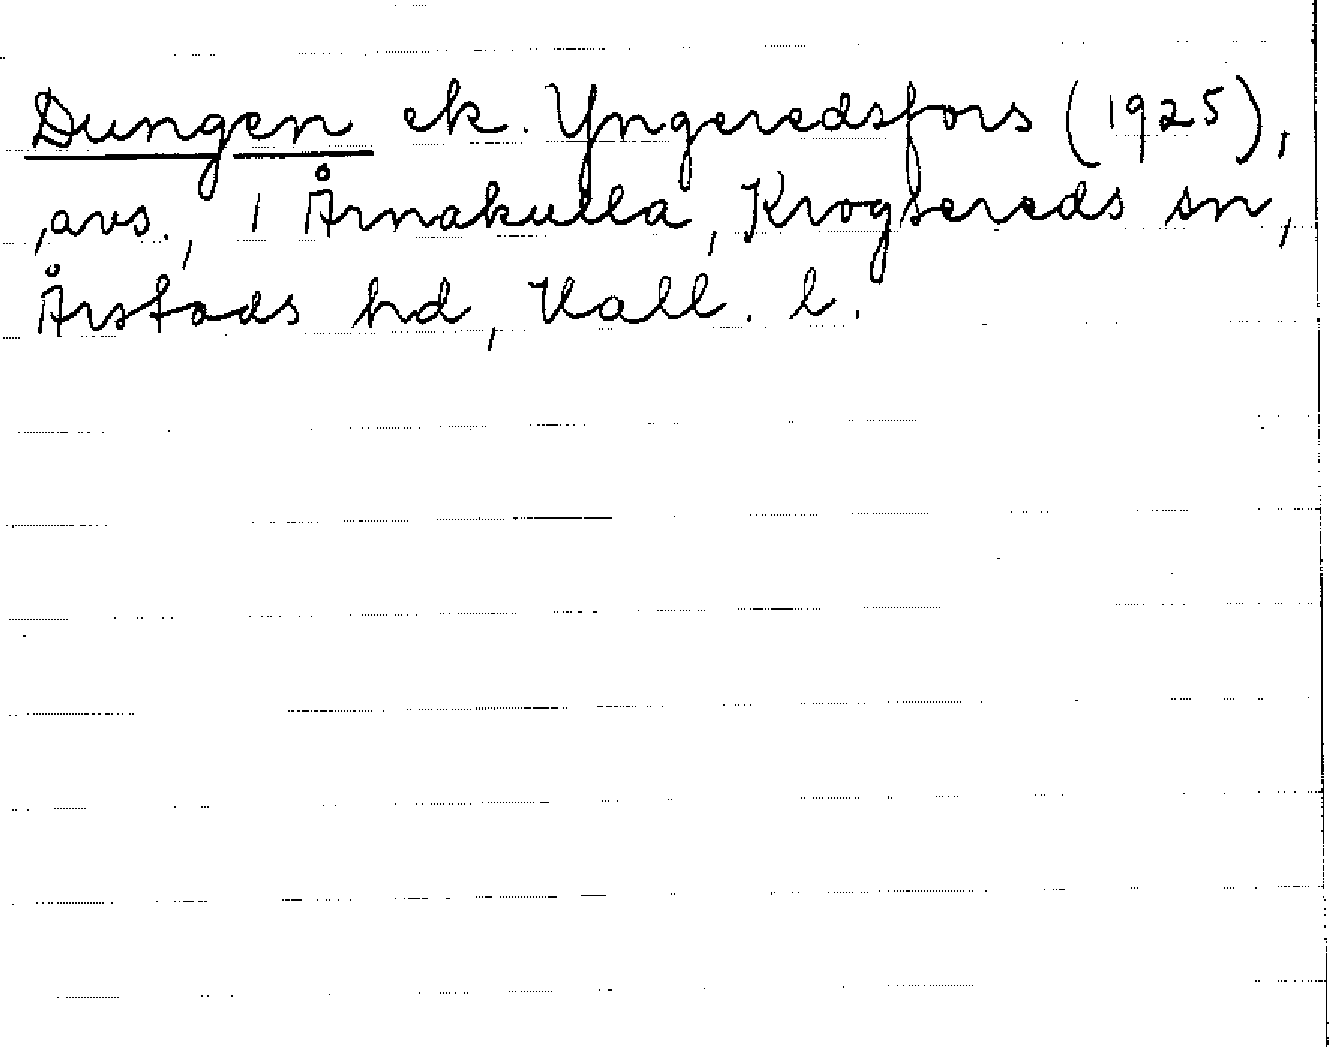 Dungen ek. Yngeredsfors (1925),
avs., 1 Årnakulla, Krogsereds sn,
Årstads hd, Hall. l.